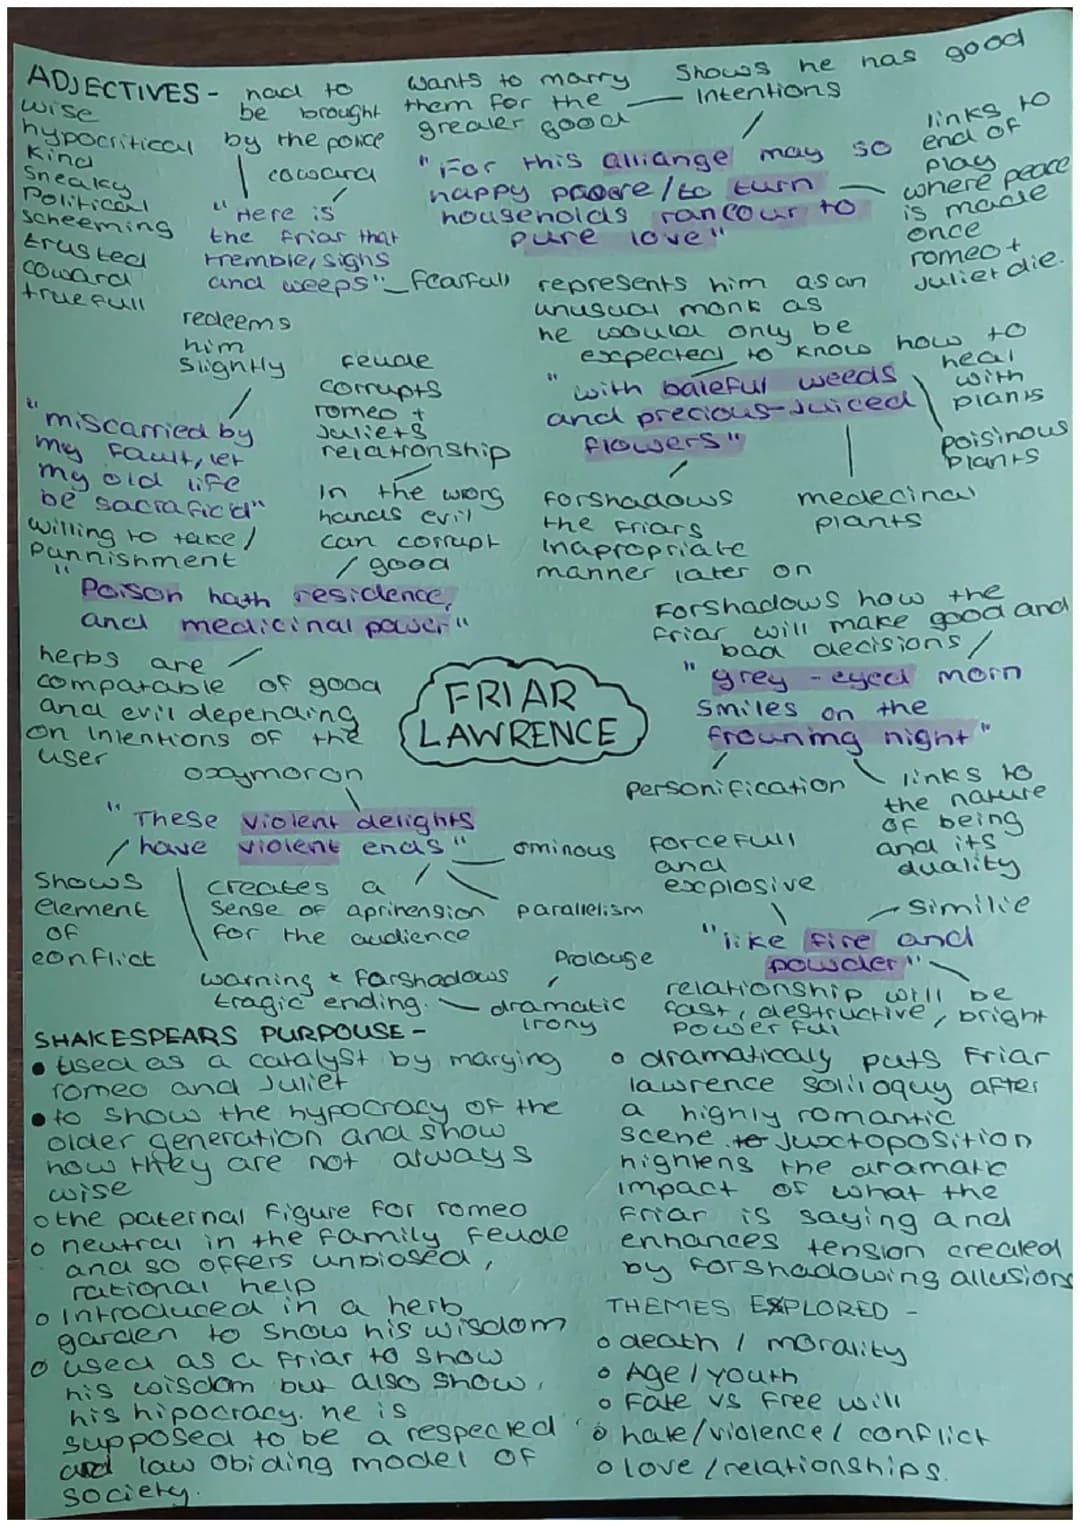 ADJECTIVES -
wise
hypocritical
kind
sneaky
Political
scheeming
trusted
coward
truefull
had to
be brought
by the police
coward
"Here is
the friar that
tremble, sighs
and weeps" - fearfull
wants to marry
them for the
greater good
Shows he has good
intentions
"For this alliange may so
happy proove / to turn
households rancour to
pure love"
links to
end of
play
where peace
is made
once
romeo +
Juliet die.
represents him as an
unusual monk as
he would only be
expected to know how to
heal
with
plants
"with baleful weeds
and precious-Juiced
flowers"
poisinous
plants
medecinal
plants
forshadows
the friars
inapropriate
manner later on
redeems
him
slightly
"miscarried by
my fault, let
my old life
be sacrafic'd"
willing to take
punnishment
feude
corrupts
romeo +
Juliets
relationship
In the wrong
hands evil
can corrupt
good
"Poison hath residence,
and medicinal power"
herbs are
compatable of good
and evil depending
on intentions of the
user
FRIAR
LAWRENCE
Forshadows how the
friar will make good and
bad decisions
"grey-eyed morn
smiles on the
frowning night"
personification
links to
the nature
of being
and its
duality
oxymoron
"These violent delights
have violent ends"
ominous
parallelism
Shows
element
of
conflict
creates a
sense of aprihension
for the audience
warning & farshadows
tragic ending.
dramatic
irony
Prolouge
forcefull
and
explosive
Similie
"like fire and
powder"
relationship will be
fast, destructive, bright
powerful
SHAKESPEARS PURPOUSE -
• used as a catalyst by marying
romeo and Juliet
• to show the hypocracy of the
older generation and show
how they are not always
wise
• the paternal figure for romeo
• neutral in the family feude
and so offers unbiased,
rational help
• Introduced in a herb
garden to show his wisdom
• used as a friar to show
his wisdom but also show
his hipocracy. he is
supposed to be a respected
and law obiding model of
society.
• dramaticaly puts Friar
lawrence soliloquy after
a highly romantic
scene. to Juxtoposition
hightens the dramatic
impact of what the
friar is saying and
enhances tension created
by forshadowing allusions
THEMES EXPLORED -
• death / morality
• Age / youth
• Fate vs Free will
• hate/violence/ conflict
• love / relationships.